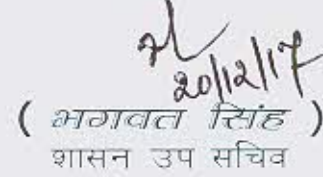 20/12/17
( भगवत सिंह )
शासन उप सचिव